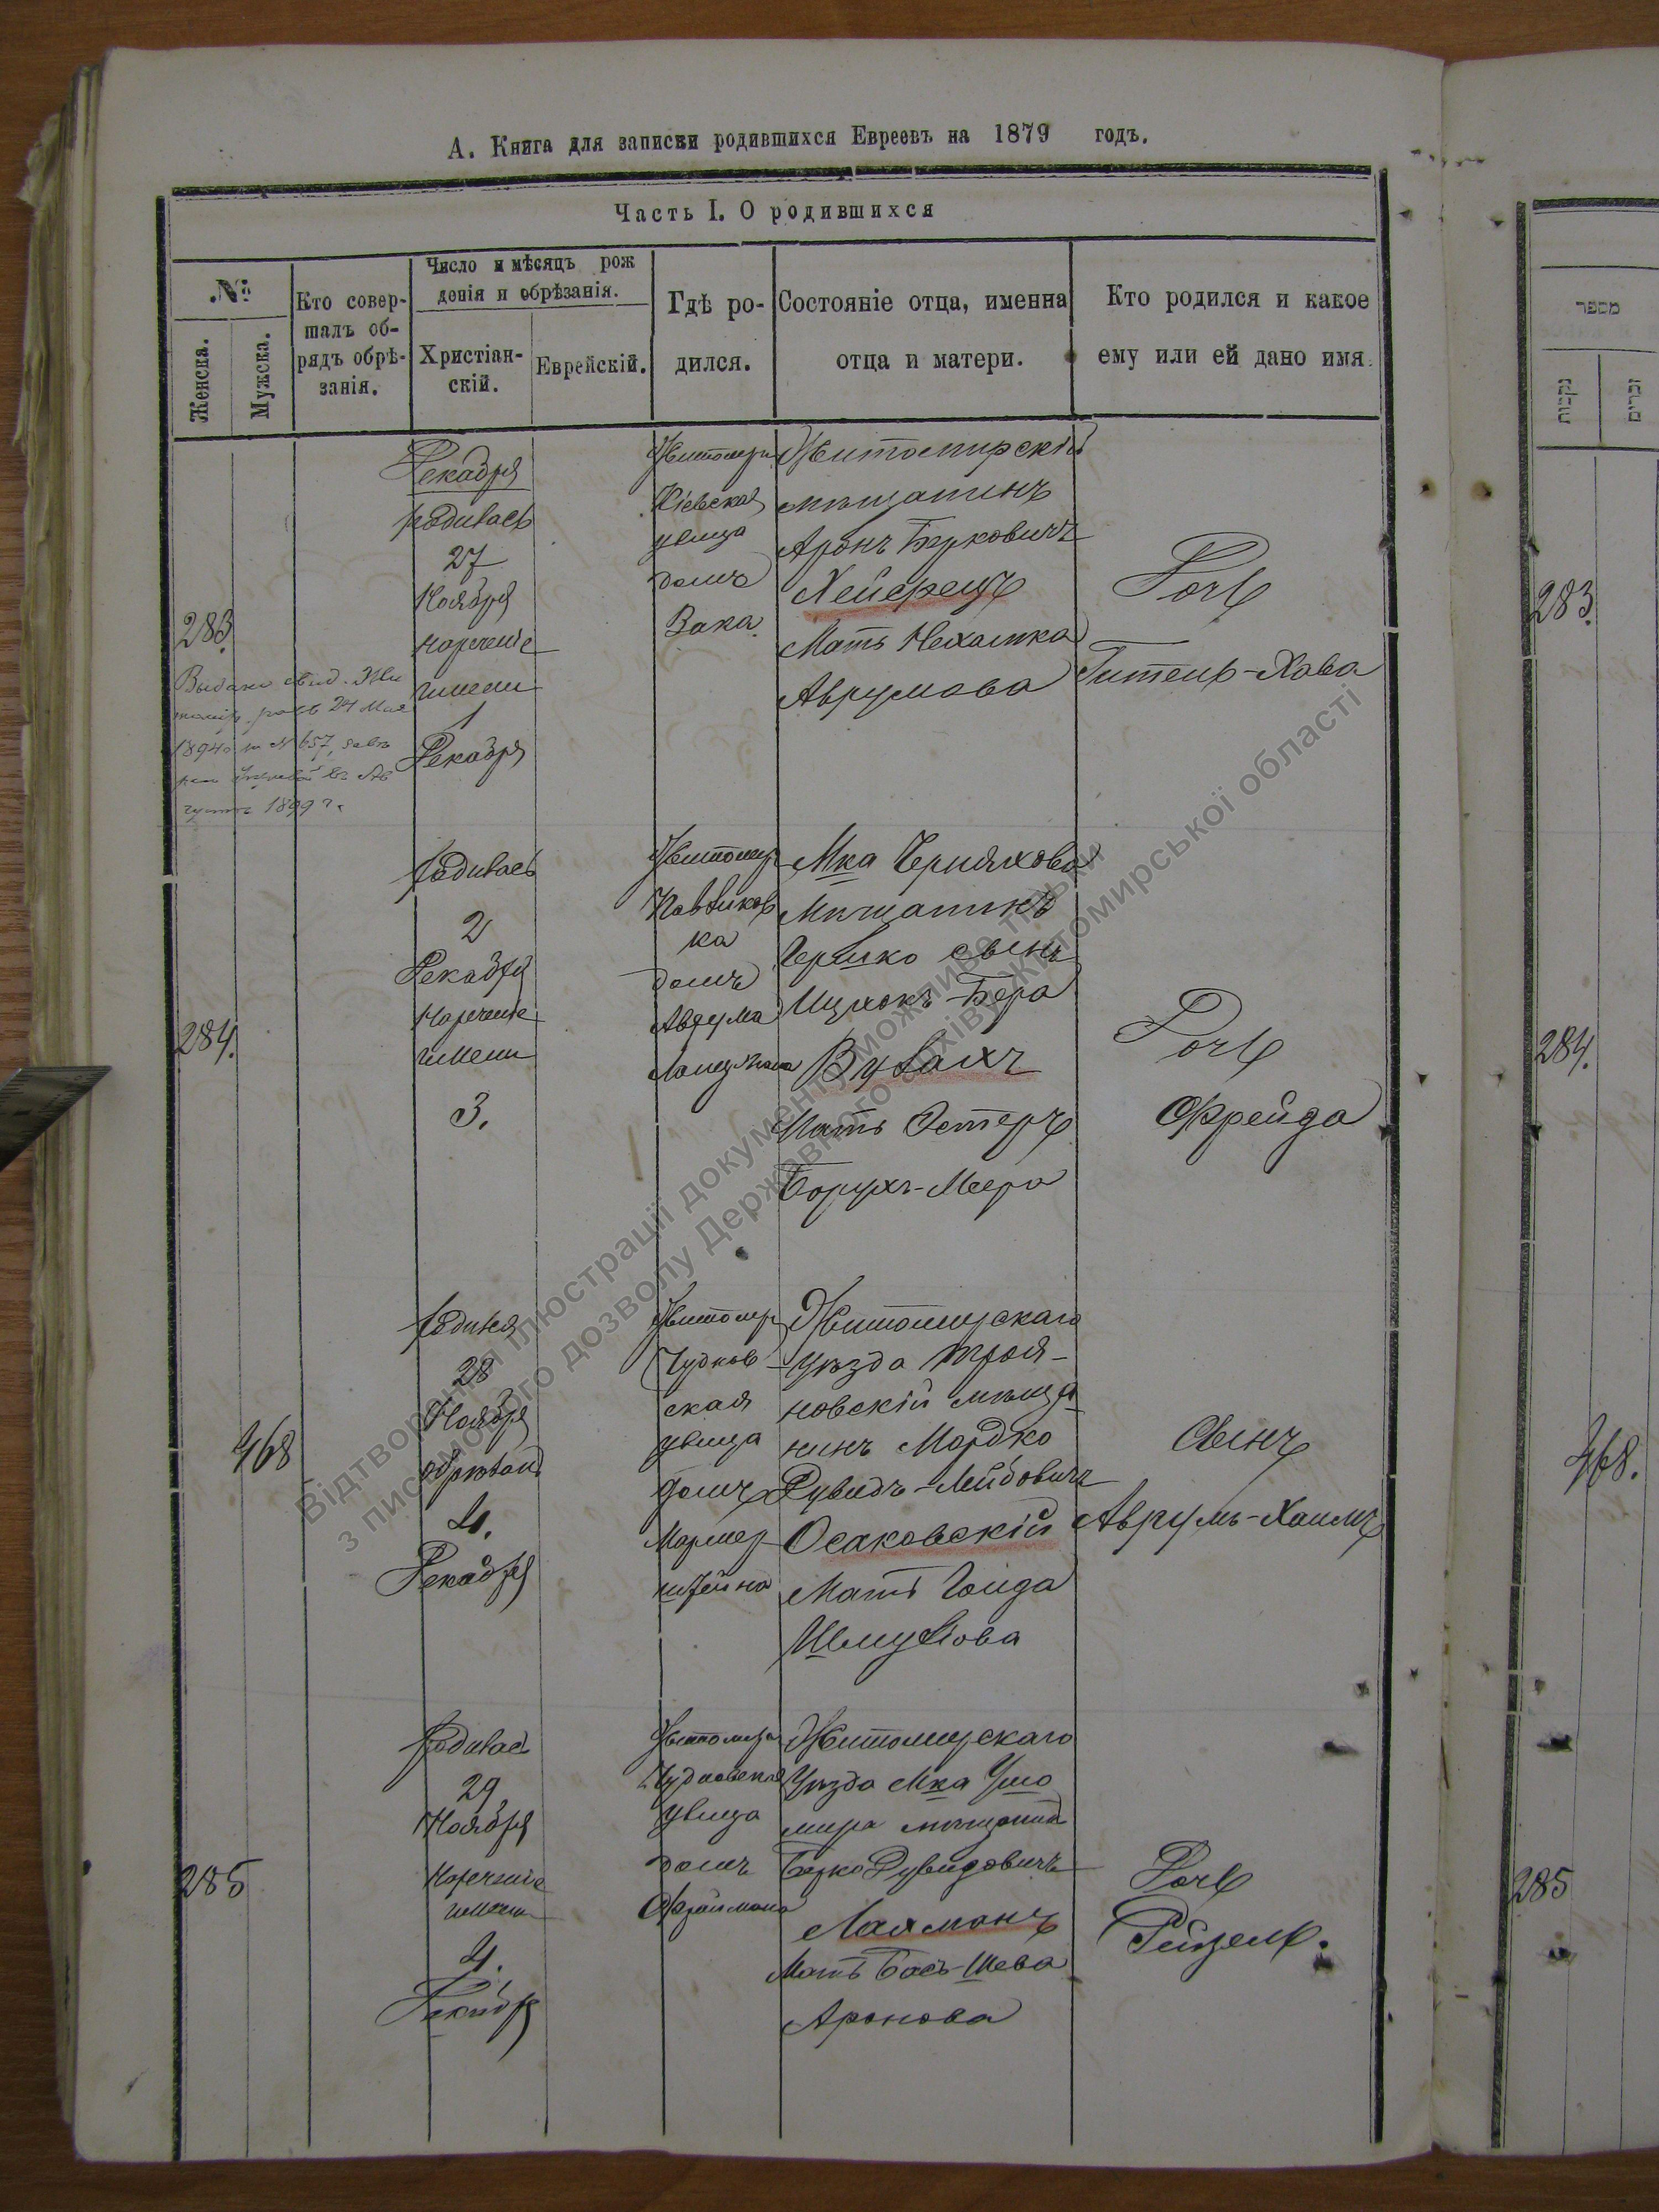 А. Книга для записки родившихся Евреевъ на 1879 годъ.
Часть I. О родившихся
№
Женска.
Мужска.
Кто совер-
шалъ об-
рядъ обрѣ-
занія.
Число и мѣсяцъ рож
денія и обрѣзанія.
Христіан-
скій.
Еврейскій.
Гдѣ ро-
дился.
Состояніе отца, именна
отца и матери.
Кто родился и какое
ему или ей дано имя.
283.
Выдано свид.
24 Мая
1894 № 657,
1899 г.
Декабря
родилась
27
Ноября
наречение
имени
1
Декабря
Житомир
Кіевская
улица
домъ
Вака.
Житомирскій
мѣщанинъ
Аронъ Беркович
Хейфецъ
Мать Нехамка
Аврумова
Дочь
Гитель-Хава
284.
родилась
2
Декабря
наречение
имени
3.
Житомир
Павликов
ка
домъ
Аврума
Мка Черняхова
Мѣщанинъ
Гершко сынъ
Ицхокъ-Бера
Вулахъ
Мать Эстеръ
Борухъ-Меера
Дочь
Фрейда
468
родился
28
Ноября
обрѣзанъ
4.
Декабря
Житомир
Чуднов
ская
улица
домъ
Мармер
штейна
Житомирскаго
уѣзда Троя-
новскій мѣща
нинъ Мордко
Дувидъ-Лейбовичъ
Осаковскій
Мать Голда
Шмулiова
Сынъ
Аврумъ-Хаимъ
285
родилась
29
Ноября
Наречение
имени
4.
Декабря
Житомир
Чудновская
улица
домъ
Фраймана
Житомирскаго
Уѣзда Мка Ушо
мира мѣщанинъ
Берко Дувидовичъ
Лахманъ
Мать Бась-Шева
Аронова
Дочь
Рейзель.
מספר
נקבות
זכרים
283.
284.
468.
285
Відтворення ілюстрації документу можливе тільки
з письмового дозволу Державного архіву Житомирської області